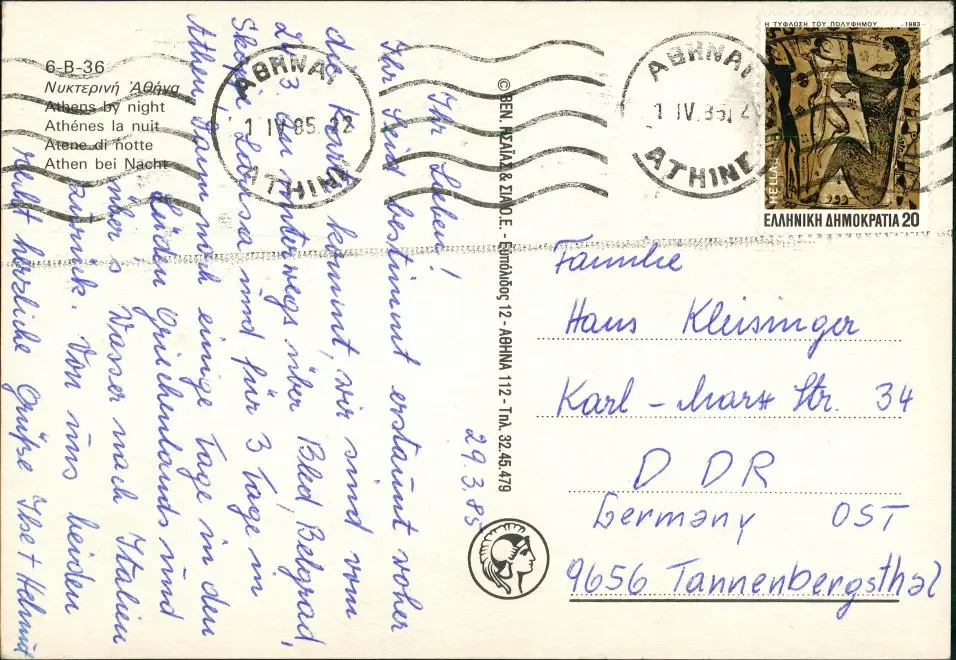 6-B-36
Νυκτερινή Ἀθήνα
Athens by night
Athénes la nuit
Atene di notte
Athen bei Nacht
29.3.85
Ihr Lieben!
Ihr seid bestimmt erstaunt woher
die Karte kommt, wir sind vom
23.3. an unterwegs über Bled, Belgrad,
Skopje, Larisa und für 3 Tage in
Athen. Dann noch einige Tage in den
Süden Griechenlands und
über's Wasser nach Italien
zurück. Von uns beiden
recht herzliche Grüße Ilse + Helmut
© ΒΕΝ. ΗΣΑΪΑΣ & ΣΙΑ Ο.Ε. - Ευπόλιδος 12 - ΑΘΗΝΑ 112 - Τηλ. 32.45.479
ΑΘΗΝΑΙ
1 IV 85 22
ATHINAI
ΑΘΗΝΑΙ
1 IV 85
ATHINE
Η ΤΥΦΛΩΣΗ ΤΟΥ ΠΟΛΥΦΗΜΟΥ 1983
HELLAS
ΕΛΛΗΝΙΚΗ ΔΗΜΟΚΡΑΤΙΑ 20
Familie
Hans Kleisinger
Karl - Marx Str. 34
D D R
Germany OST
9656 Tannenbergsthal